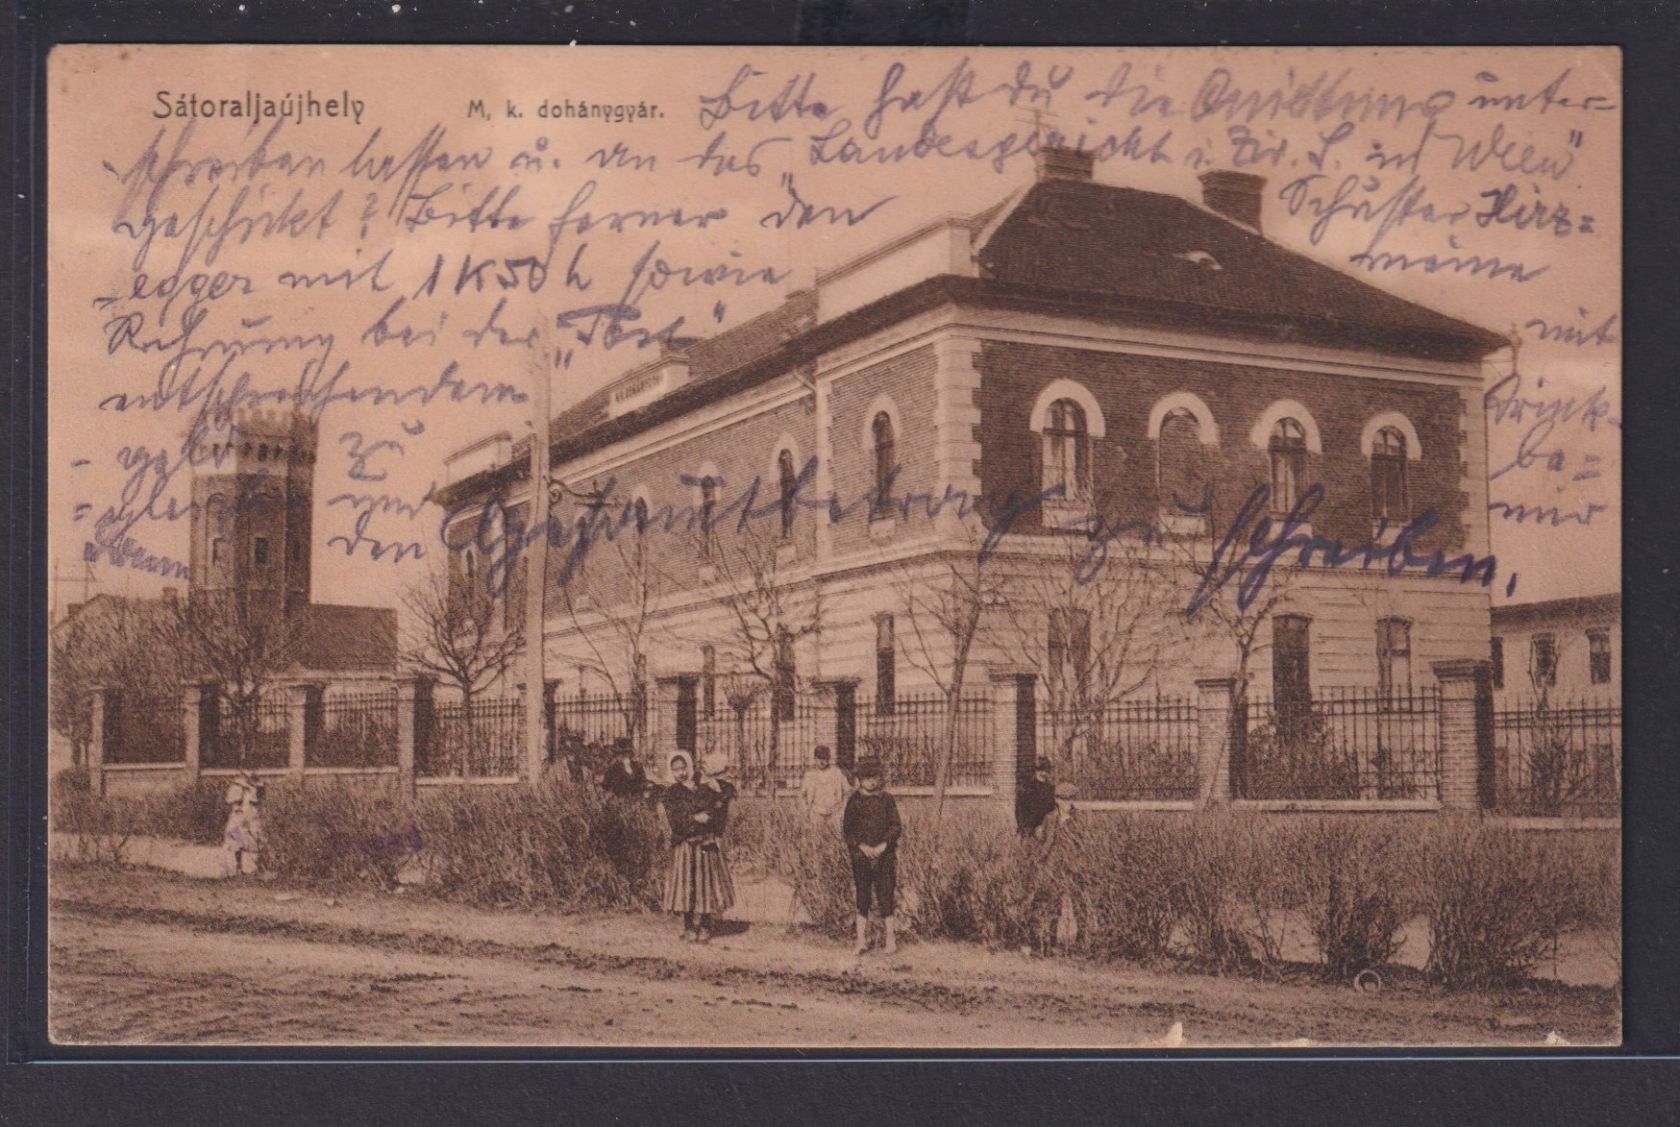 Sátoraljaújhely M. k. dohánygyár.
Bitte hast du die Quittung unter=
schreiben lassen u. an das „Landesgericht i. Ziv. S. in Wien"
geschickt? Bitte ferner den Schuster Hirz=
=egger mit 1 K 50 h sowie meine
Rechnung bei der „Post" mit
entsprechendem Trink-
- geld zu be=
= gleichen und mir
den Gesamtbetrag zu schreiben.